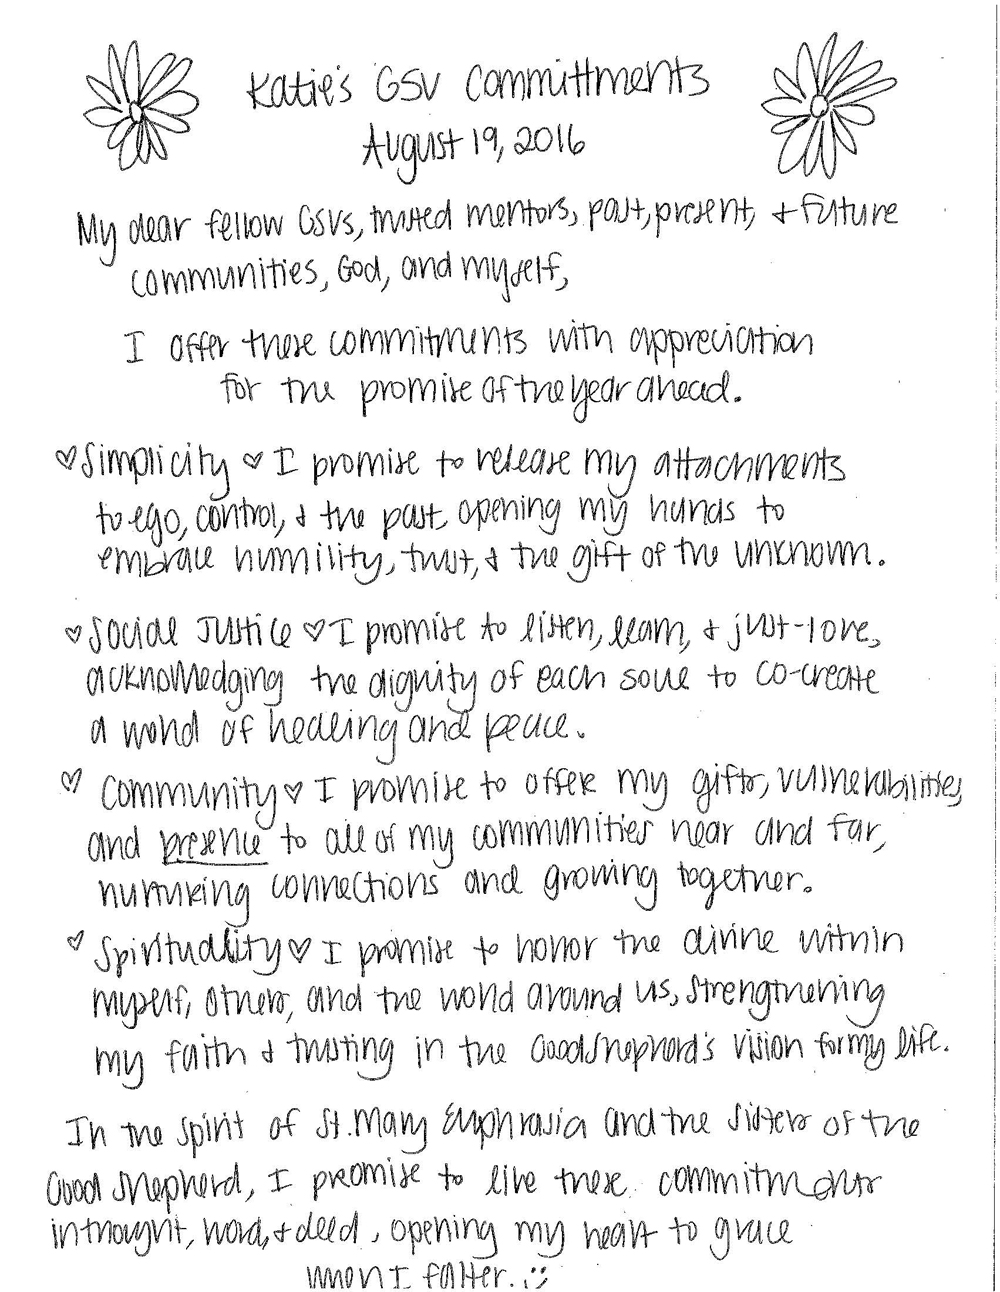 Katie's GSV Committments
August 19, 2016
My dear fellow GSVs, trusted mentors, past, present, + future
communities, God, and myself,
I offer these commitments with appreciation
for the promise of the year ahead.
♡ Simplicity ♡ I promise to release my attachments
to ego, control, & the past, opening my hands to
embrace humility, trust, & the gift of the unknown.
♡ Social Justice ♡ I promise to listen, learn, + just-love,
acknowledging the dignity of each soul to co-create
a world of healing and peace.
♡ Community ♡ I promise to offer my gifts, vulnerabilities,
and presence to all of my communities near and far,
nurturing connections and growing together.
♡ Spirituality ♡ I promise to honor the divine within
myself, others, and the world around us, strengthening
my faith & trusting in the Good Shepherd's vision for my life.
In the spirit of St. Mary Euphrasia and the Sisters of the
Good Shepherd, I promise to live these commitments
in thought, word, + deed, opening my heart to grace
when I falter. :)